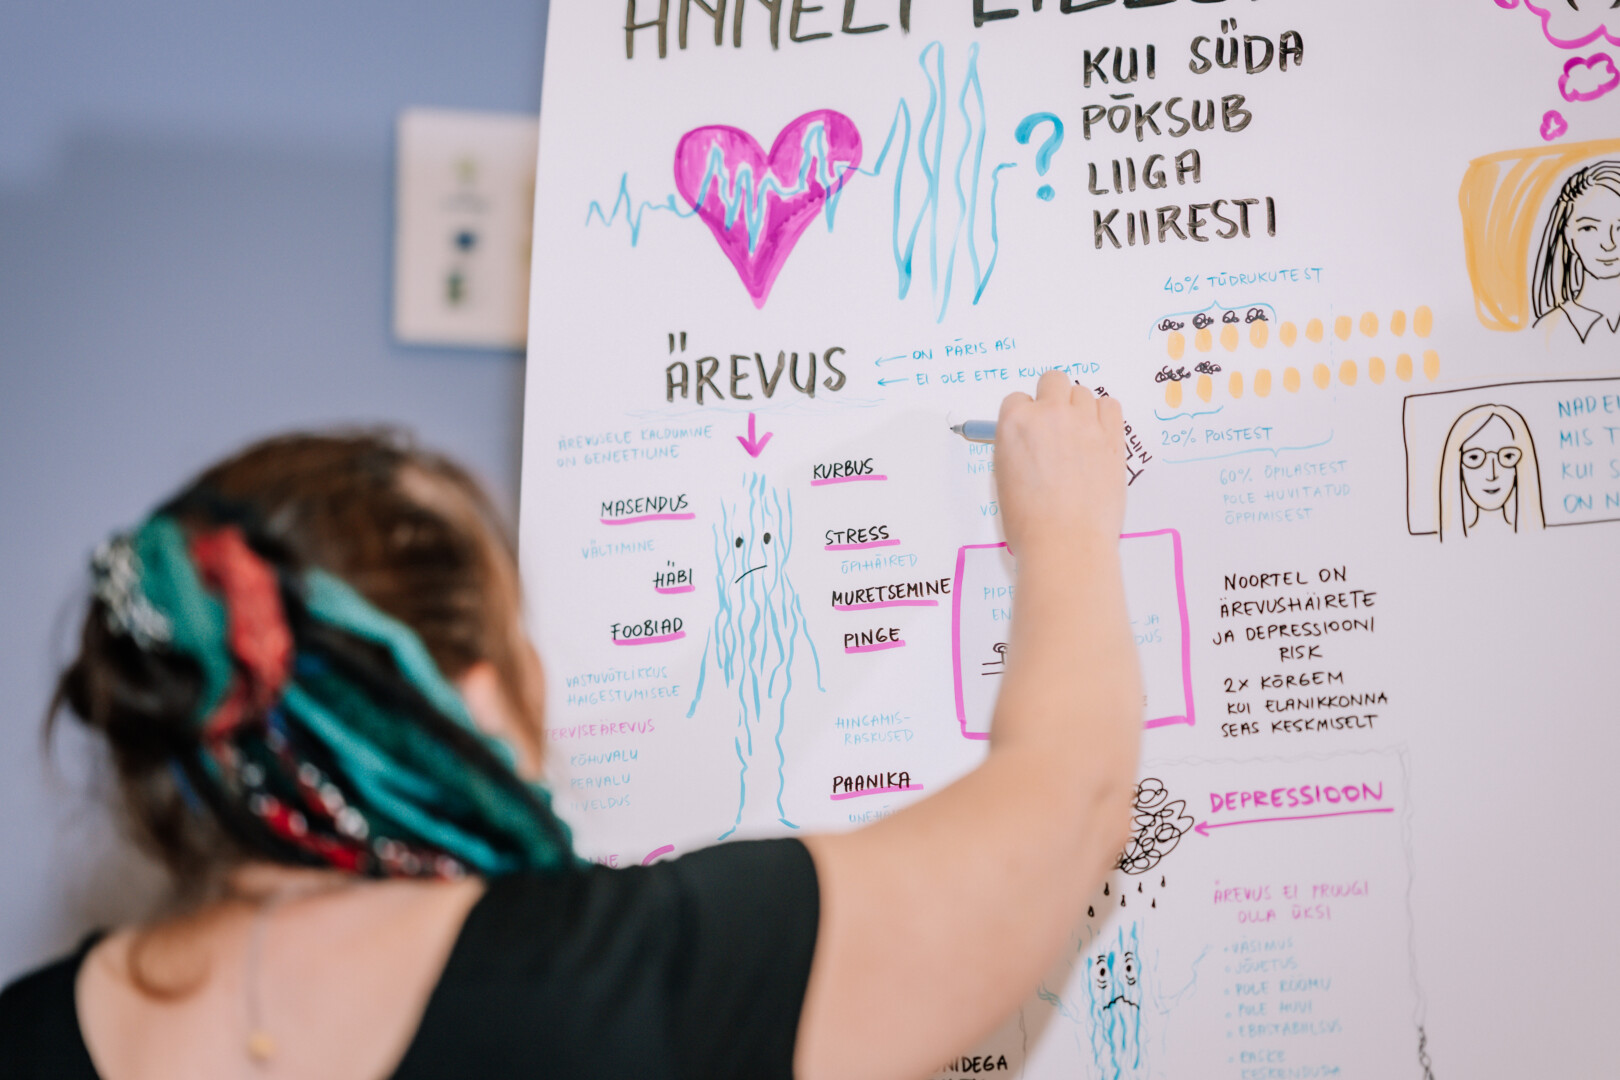 KUI SÜDA
PÕKSUB
LIIGA
KIIRESTI
?
40% TÜDRUKUTEST
ÄREVUS
ON PÄRIS ASI
EI OLE ETTE KUJUTATUD
20% POISTEST
60% ÕPILASTEST
POLE HUVITATUD
ÕPPIMISEST
ÄREVUSELE KALDUMINE
ON GENEETILINE
KURBUS
MASENDUS
STRESS
VÄLTIMINE
ÕPIHÄIRED
HÄBI
MURETSEMINE
FOOBIAD
PINGE
VASTUVÕTLIKKUS
HAIGESTUMISELE
TERVISEÄREVUS
KÕHUVALU
PEAVALU
HINGAMIS-
RASKUSED
PAANIKA
NOORTEL ON
ÄREVUSHÄIRETE
JA DEPRESSIOONI
RISK
2X KÕRGEM
KUI ELANIKKONNA
SEAS KESKMISELT
MIS
KUI
ON
DEPRESSIOON
ÄREVUS EI PRUUGI
OLLA ÜKSI
• VÄSIMUS
• JÕUETUS
• POLE RÕÕMU
• POLE HUVI
• EBASTABIILSUS
• RASKE
KESKENDUDA